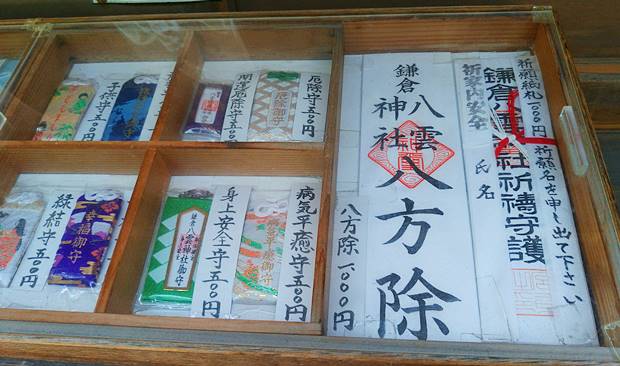 祈願紙札 一〇〇〇円 祈願名を申し出て下さい
鎌倉八雲神社祈祷守護
祈家内安全 氏名
鎌倉
八雲
神社
八方除
八方除 一〇〇〇円
厄除守五〇〇円
厄除御守
開運厄除守五〇〇円
子供守五〇〇円
病気平癒守五〇〇円
病気平癒御守
身上安全守五〇〇円
鎌倉八雲神社御守
幸福御守
縁結守五〇〇円